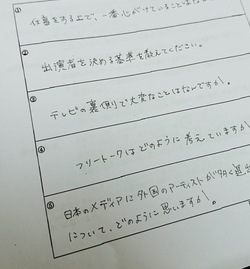 ①
仕事をする上で、一番心がけていることはな
②
出演者を決める基準を教えてください。
③
テレビの裏側で大変なことはなんですか。
④
フリートークはどのように考えていますか
⑤
日本のメディアに外国のアーティストが多く進出
について、どのように思いますか。